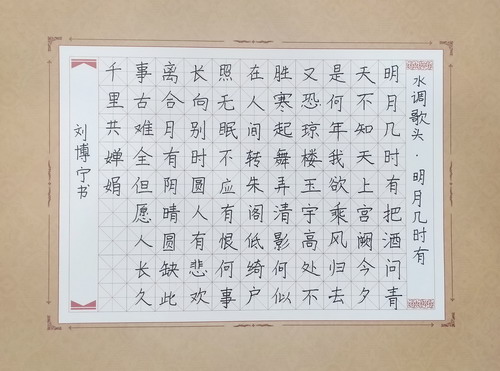 水调歌头·明月几时有
明月几时有把酒问青
天不知天上宫阙今夕
是何年我欲乘风归去
又恐琼楼玉宇高处不
胜寒起舞弄清影何似
在人间转朱阁低绮户
照无眠不应有恨何事
长向别时圆人有悲欢
离合月有阴晴圆缺此
事古难全但愿人长久
千里共婵娟
刘博宁书